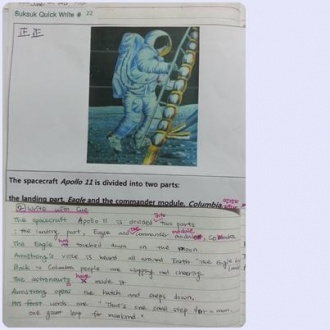 Buksuk Quick Write # 22
正 正
The spacecraft Apollo 11 is divided into two parts:
the landing part, Eagle and the commander module, Columbia
The spacecraft Apollo 11 is divided into two parts
the landing part, Eagle and the commander module, Columbia
The Eagle has touched down on the moon.
Armstrong's voice is heard all around Earth "The Eagle
Back in Columbia people are clapping and cheering.
The astronauts have made it.
Armstrong opens the hatch and steps down.
His first words are "That's one small step for a man.
one great leap for mankind"